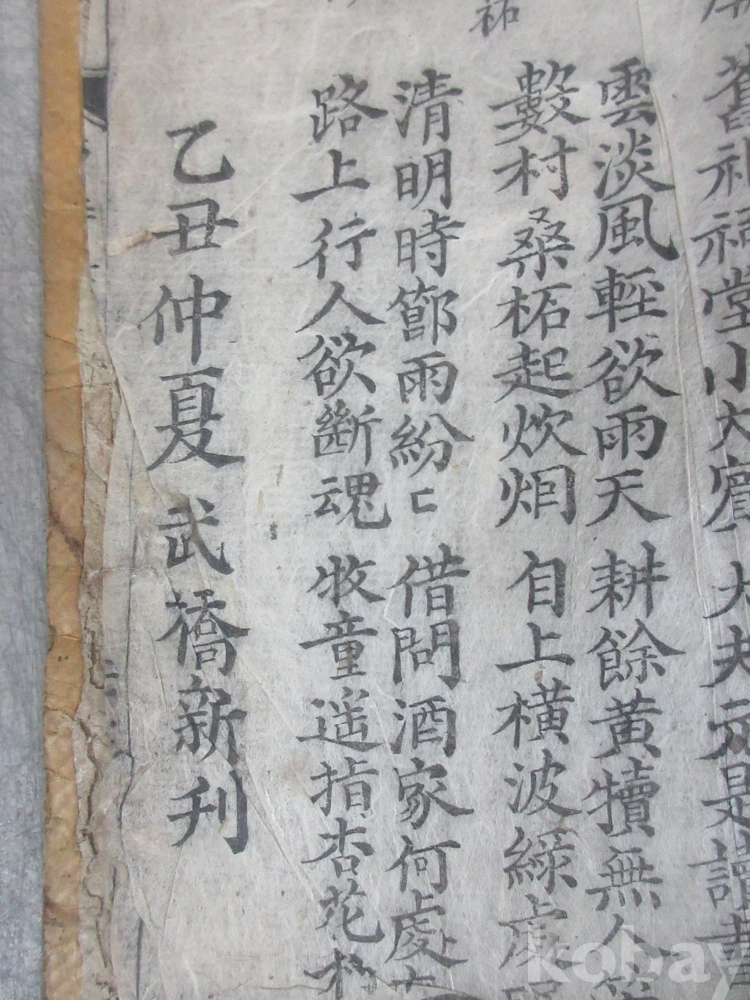 舊
堂小大賓
大夫亦是讀書
雲淡風輕欲雨天
耕餘黃犢無人
數村桑柘起炊烟
自上橫波綠處
祐
清明時節雨紛〻
借問酒家何處有
路上行人欲斷魂
牧童遙指杏花村
乙丑仲夏武橋新刊
kobay